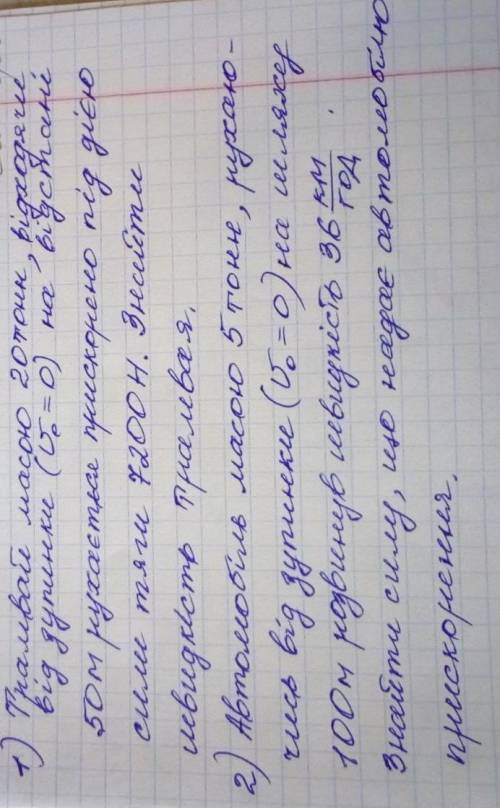 1) Трамвай масою 20 тонн, відходячи
від зупинки (v₀ = 0) на відстані
50 м рухається прискорено під дією
сили тяги 7200 Н. Знайти
швидкість трамвая.
2) Автомобіль масою 5 тонн, рухаю-
чись від зупинки (v₀ = 0) на шляху
100 м розвинув швидкість 36 км/год.
Знайти силу, що надає автомобілю
прискорення.